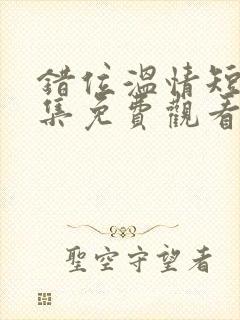 錯位溫情短
集免費觀看
聖空守望者